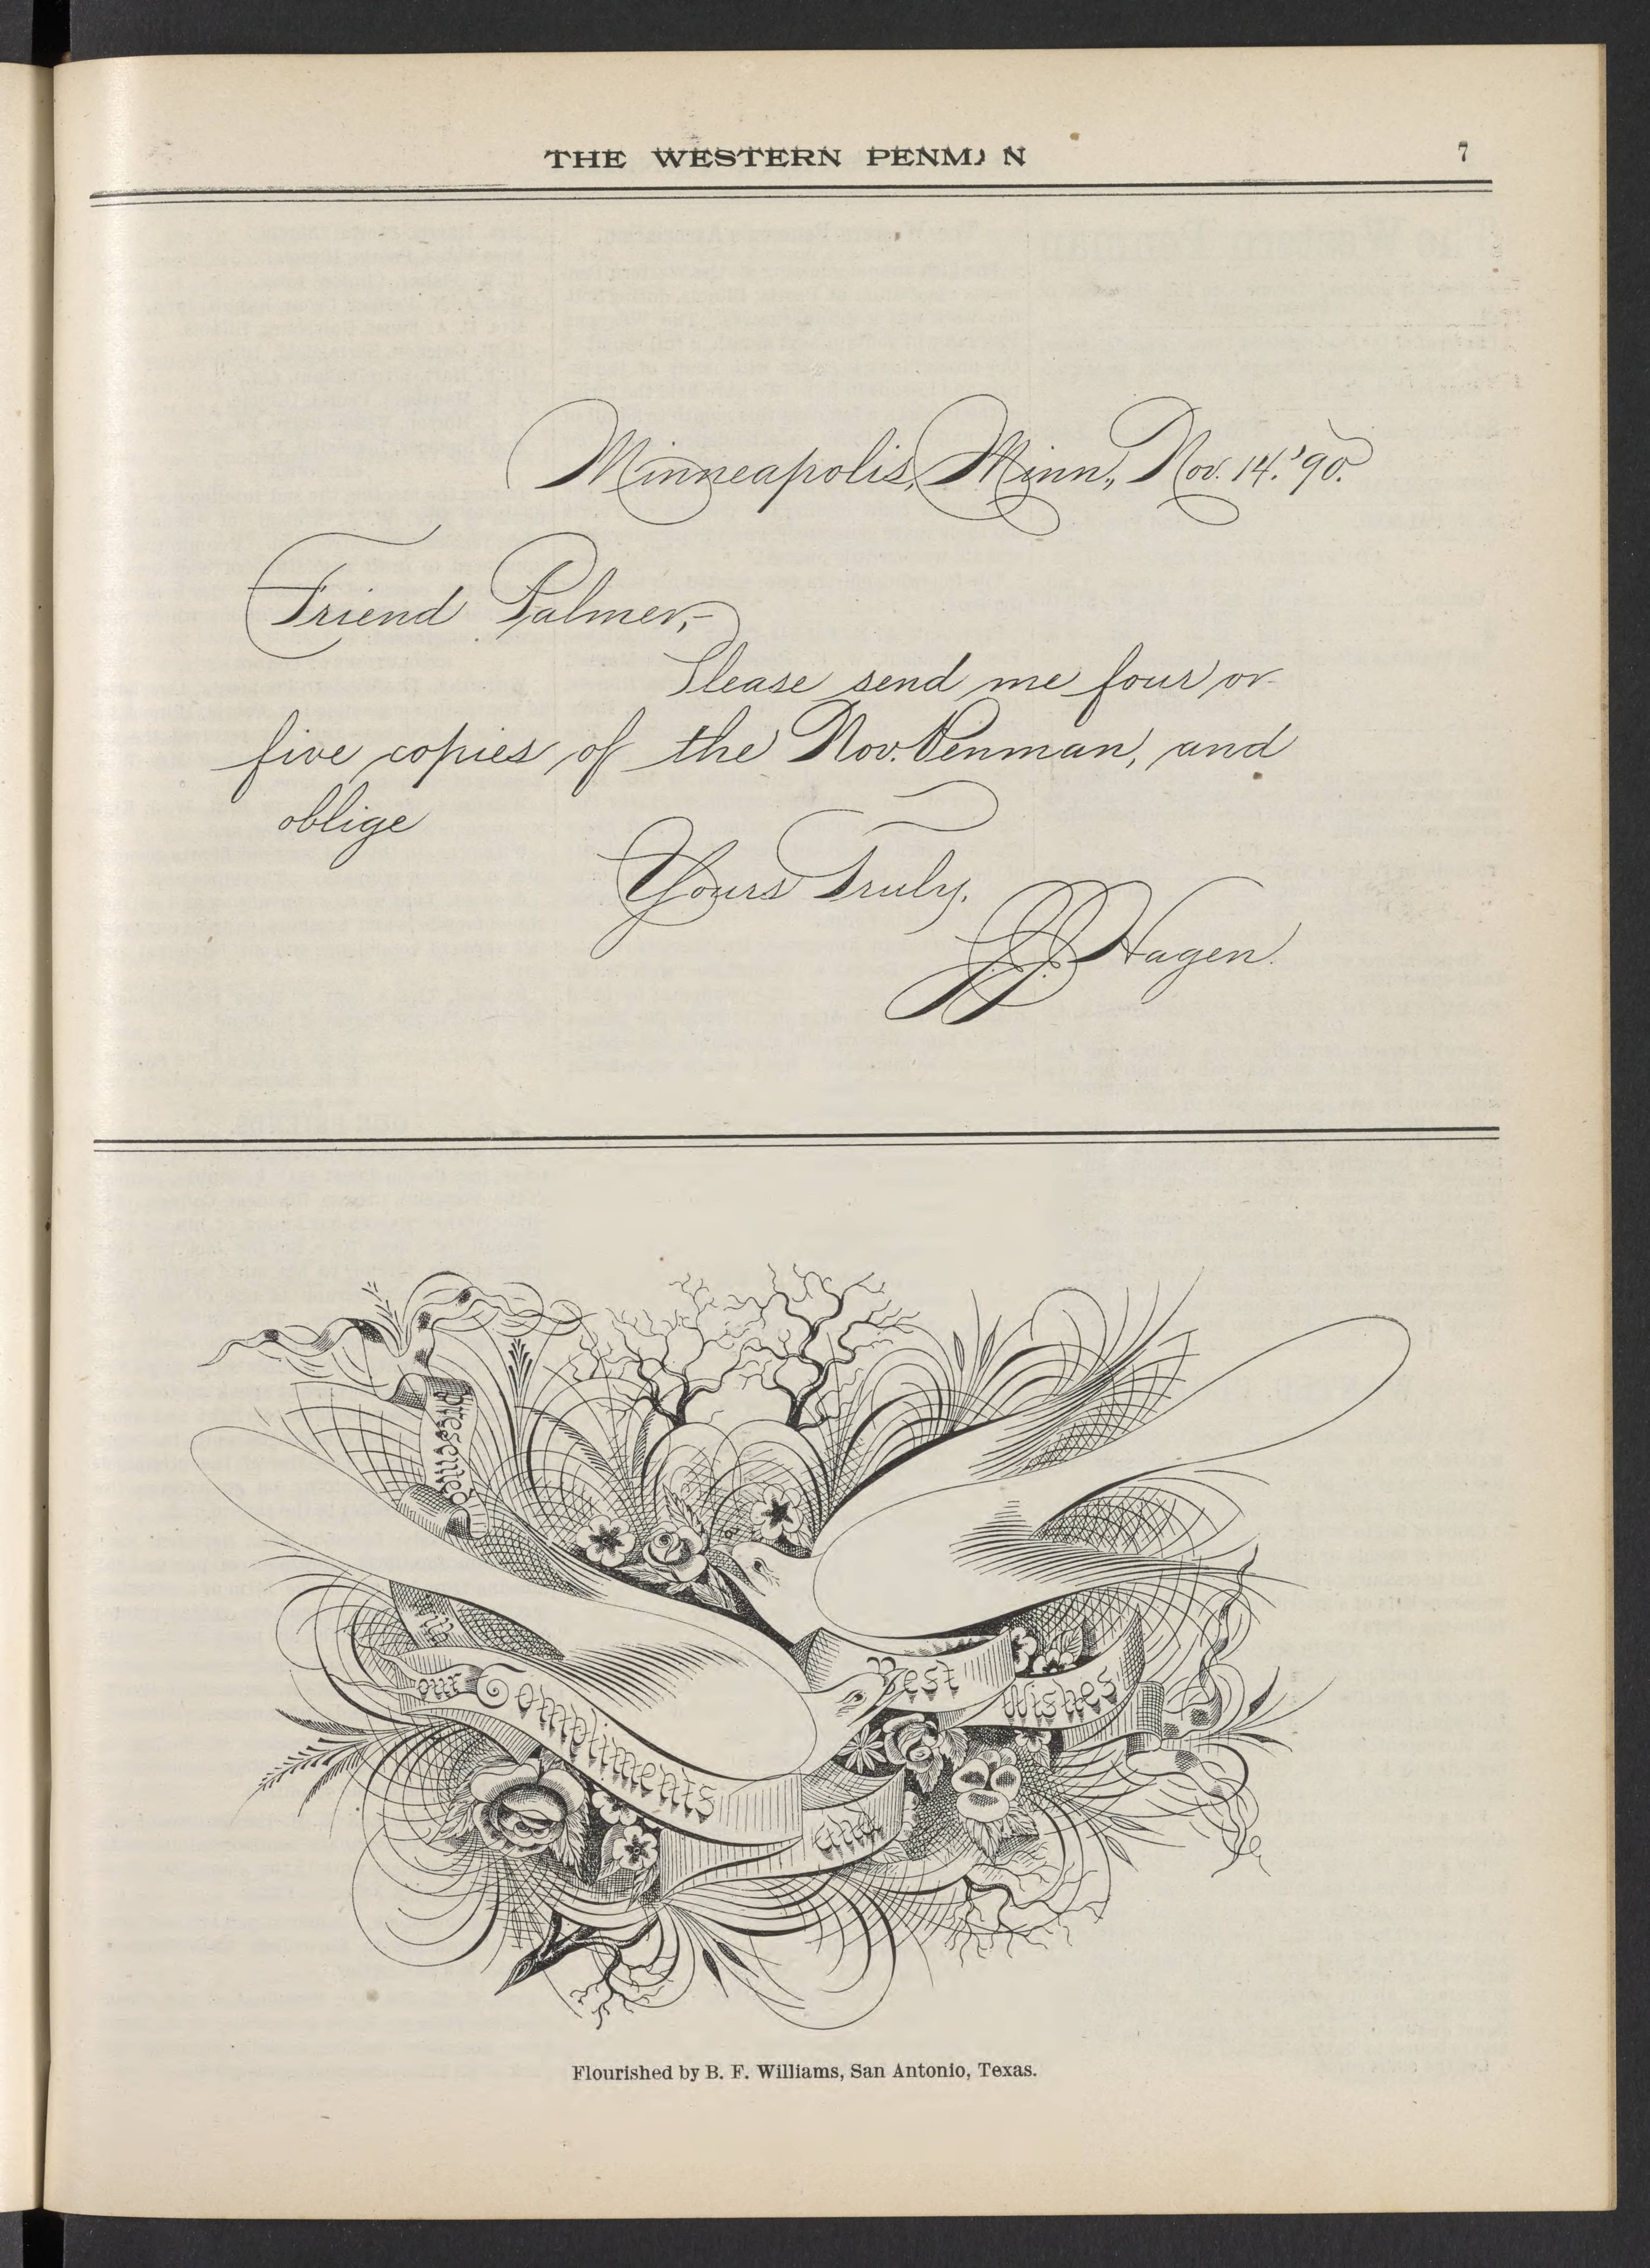 THE WESTERN PENM N
7
Minneapolis, Minn., Nov. 14. '90.
Friend Palmer,-
Please send me four or
five copies of the Nov. Penman, and
oblige
Yours Truly,
J. J. Hagen.
Presented
with
our Compliments
and
Best
Wishes
Flourished by B. F. Williams, San Antonio, Texas.